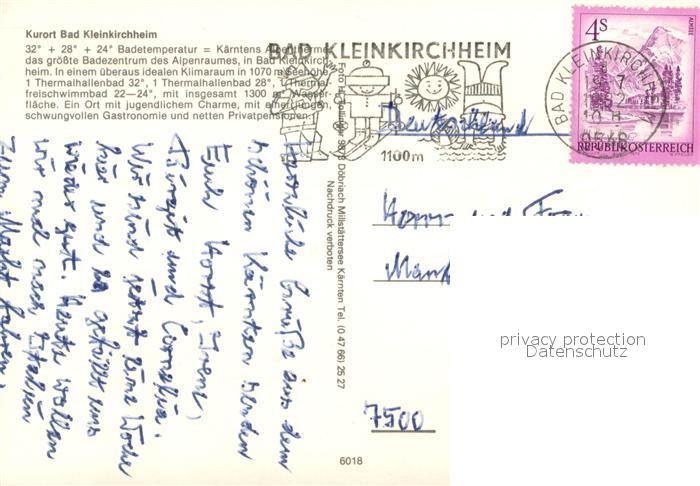 Kurort Bad Kleinkirchheim
32° + 28° + 24° Badetemperatur = Kärntens Alpentherme,
das größte Badezentrum des Alpenraumes, in Bad Kleinkirch
heim. In einem überaus idealen Klimaraum in 1070 m Seehöhe,
1 Thermalhallenbad 32°, 1 Thermalhallenbad 28°, 1 Thermal
freischwimmbad 22—24°, mit insgesamt 1300 m² Wasser-
fläche. Ein Ort mit jugendlichem Charme, mit einer jungen,
schwungvollen Gastronomie und netten Privatpensionen.
BAD KLEINKIRCHHEIM
1100m
BAD KLEINKIRCHHEIM
9546
4S
ALMSEE
REPUBLIK ÖSTERREICH
Deutschland
Herrn und Frau
7500
Foto 9873 Döbriach Millstättersee Kärnten Tel. (0 47 66) 25 27
Nachdruck verboten
6018
Herzliche Grüße aus dem
schönen Kärnten senden
Euch Horst, Irene,
und Cornelia.
Wir sind jetzt eine Woche
hier und es gefällt uns
wieder gut. Heute wollen
wir mal nach Italien
zum Markt fahren.
privacy protection
Datenschutz